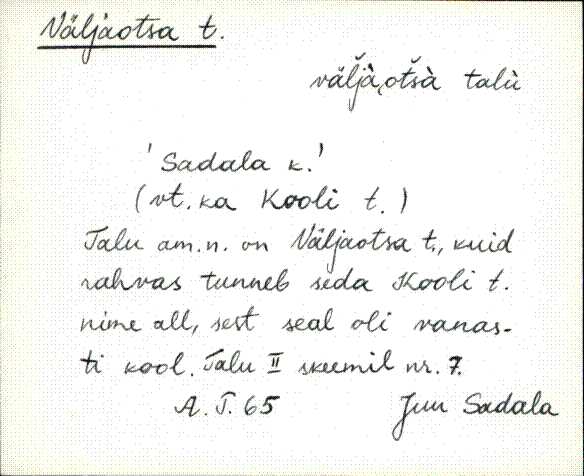 Väljaotsa t.
väljà, otsà talù
'Sadala k.'
(vt. ka Kooli t.)
Talu am. n. on Väljaotsa t., kuid
rahvas tunneb seda Kooli t.
nime all, sest seal oli vanas-
ti kool. Talu II skeemil nr. 7.
A. T. 65 Juu Sadala